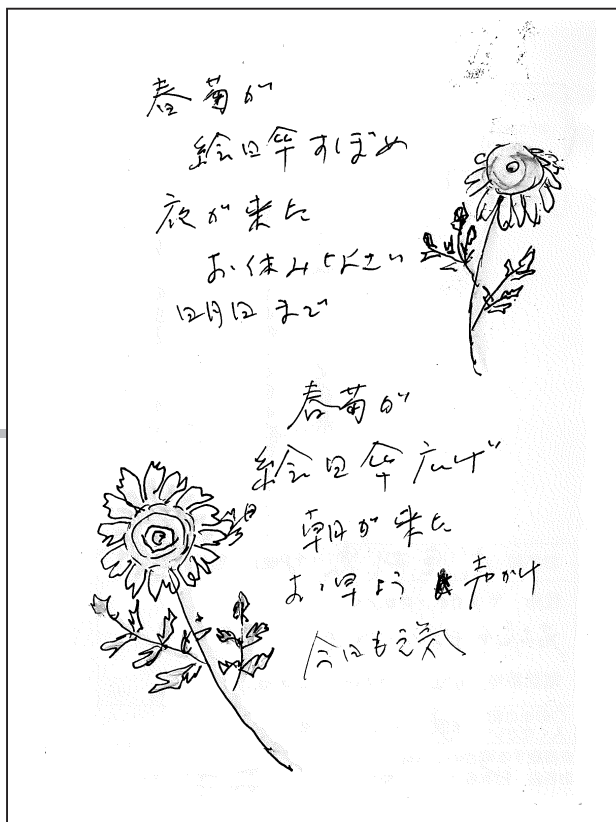 春菊が
絵日傘すぼめ
夜が来た
お休みください
明日まで
春菊が
絵日傘広げ
朝が来た
お早よう 声かけ
今日も元気